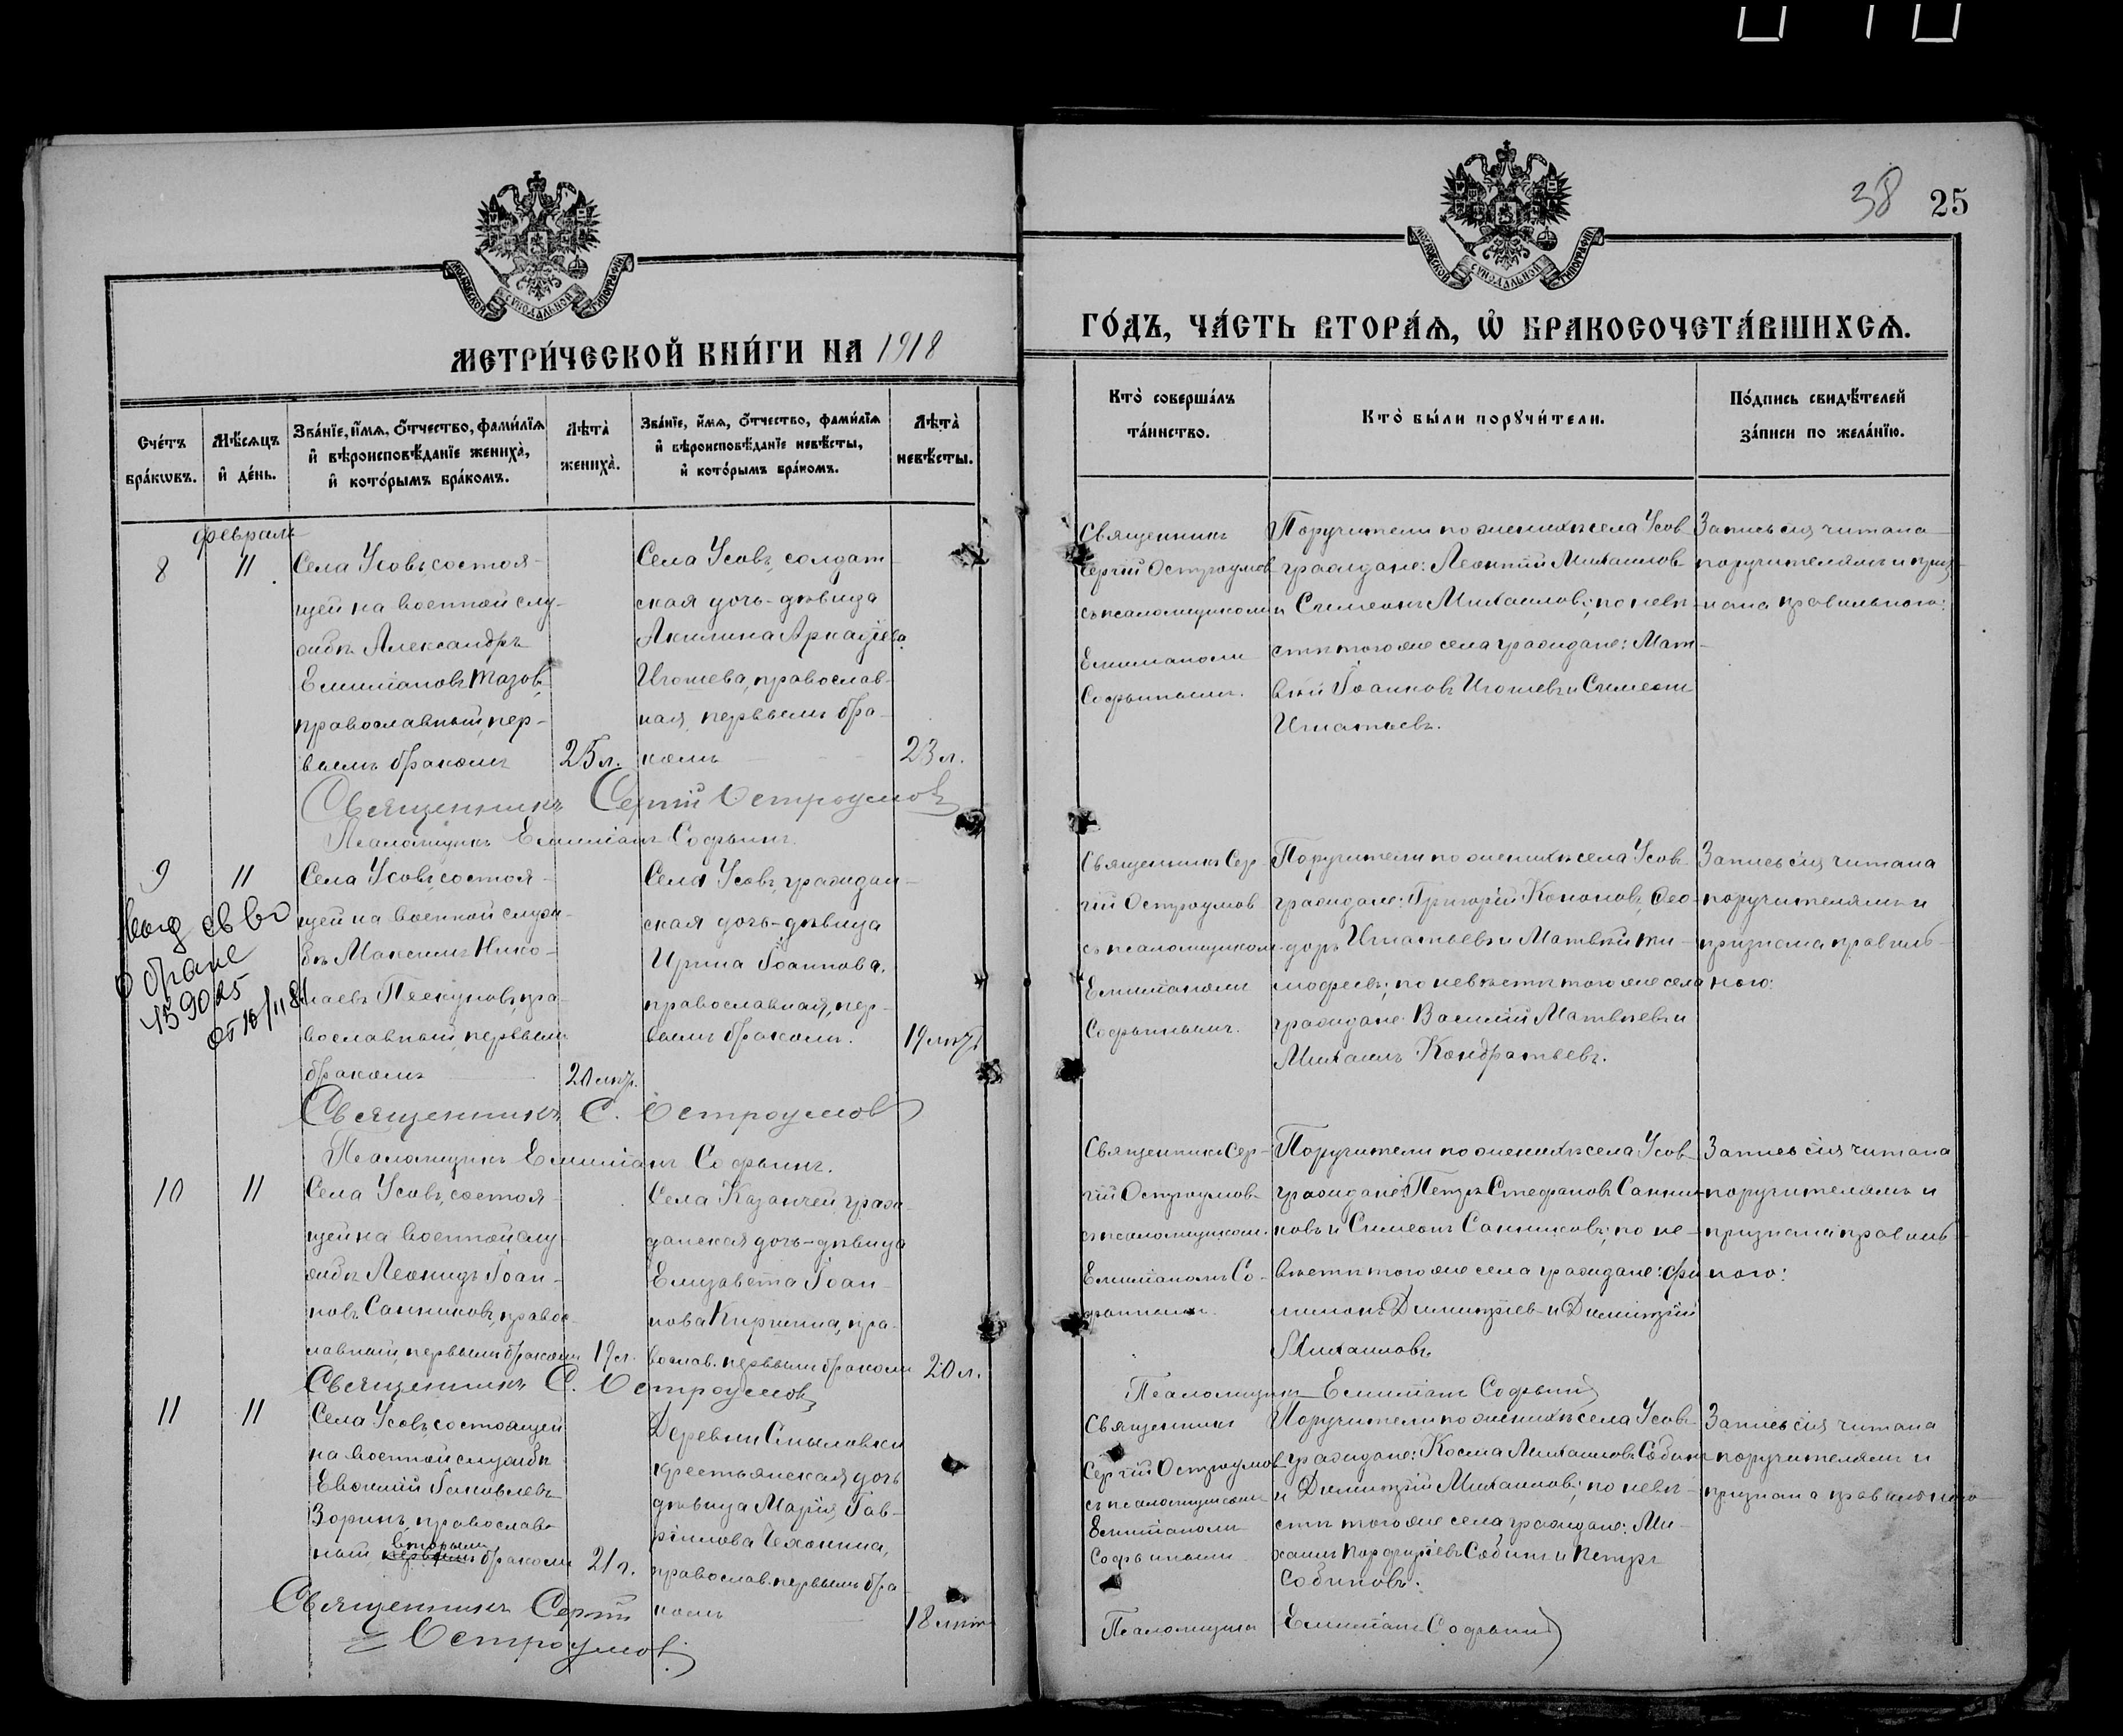 38 25
МОСКОВСКОЙ СѴНОДАЛЬНОЙ ТИПОГРАФІИ
МОСКОВСКОЙ СѴНОДАЛЬНОЙ ТИПОГРАФІИ
МЕТРИ́ЧЕСКОЙ КНИ́ГИ НА 1918
ГО́ДЪ, ЧА́СТЬ ВТОРА́Ѧ, Ѡ҆ БРАКОСОЧЕТА́ВШИХСѦ.
Сче́тъ бра́кѡвъ.
Мѣ́сѧцъ и҆ де́нь.
Зва́нїе, и҆́мѧ, ѻ҆́тчество, фами́лїѧ
и҆ вѣроисповѣ́данїе жениха̀,
и҆ кото́рымъ бра́комъ.
Лѣта̀ жениха̀.
Зва́нїе, и҆́мѧ, ѻ҆́тчество, фами́лїѧ
и҆ вѣроисповѣ́данїе невѣ́сты,
и҆ кото́рымъ бра́комъ.
Лѣта̀ невѣ́сты.
Кто̀ соверша́лъ
та́инство.
Кто̀ бы́ли порꙋчи́тели.
По́дпись свидѣ́телей
за́писи по жела́нїю.
февраль
8
11
Села Усовъ, состоя-
щей на военной слу-
жбѣ Александръ
Епипановъ Тазов,
православный, пер-
вымъ бракомъ
25 л.
Села Усовъ, солдат
ская дочь-дѣвица
Акилина Аркадіева
Игошева, православ-
ная, первымъ бра-
комъ
23 л.
Священникъ
Сергій Остроумов
съ псаломщиком
Епипаномъ
Софьинымъ.
Поручители по женихѣ села Усов
граждане: Леонтій Михаилов
и Симеонъ Михаилов; по невѣ-
стѣ того же села граждане: Мат-
вѣй Іоанновъ Игошевъ и Симеон
Игнатьевъ.
Запись сія читана
поручителямъ и приз-
нана правильною:
Священникъ Сергій Остроумов
Псаломщикъ Епипанъ Софьинъ.
9
11
Выд св во
о браке
от 16/II 81
Села Усовъ, состоя-
щей на военной служ-
бѣ Максимъ Нико-
лаевъ Пескуновъ, пра-
вославный, первымъ
бракомъ
20 лѣтъ.
Села Усовъ, граждан-
ская дочь-дѣвица
Ирина Іоаннова,
православная, пер-
вымъ бракомъ.
19 лѣтъ
Священникъ Сер-
гій Остроумов
съ псаломщиком
Епипаномъ
Софьинымъ.
Поручители по женихѣ села Усов
граждане: Григорій Кононов, Ѳео-
доръ Игнатьевъ и Матвѣй Ти-
мофеевъ; по невѣстѣ того же села
граждане Василій Матвѣевъ и
Михаилъ Кондратьевъ.
Запись сія читана
поручителямъ и
признана правиль-
ною:
Священникъ С. Остроумов
Псаломщикъ Епипанъ Софьинъ.
10
11
Села Усовъ, состоя
щей на военной слу-
жбѣ Леонидъ Іоан-
новъ Санниковъ, правос-
лавный, первымъ бракомъ
19 л.
Села Казанчей, граж-
данская дочь-дѣвица
Елизавета Іоан-
нова Киркина, пра-
вослав. первымъ бракомъ
20 л.
Священникъ Сер-
гій Остроумов
съ псаломщиком.
Епипаномъ Со-
фьинымъ.
Поручители по женихѣ села Усов
граждане: Петръ Стефановъ Санни-
ковъ и Симеонъ Санниковъ; по не-
вѣстѣ того же села граждане: Фи
лимонъ Димитріев и Димитрій
Михаиловъ.
Запись сія читана
поручителямъ и
признана правиль-
ною:
Священникъ С. Остроумовъ
Псаломщикъ Епипанъ Софьинъ
11
11
Села Усовъ, состоящей
на военной службѣ
Евгений Іаковлевъ
Зоринъ, православ-
ный вторымъ бракомъ
21 л.
Деревни Смыловки
крестьянская дочь
дѣвица Марія Гав-
ріилова Чехонина,
православ. первымъ бра-
комъ
18 лѣтъ
Священникъ
Сергій Остроумов
съ псаломщикомъ
Епипаномъ
Софьинымъ
Поручители по женихѣ села Усов
граждане: Косма Михаиловъ Собин
и Димитрій Михаилов; по невѣ-
стѣ того же села граждане: Ми-
хаилъ Собинъ и Петръ
Собиновъ.
Запись сія читана
поручителямъ и
признана правильною
Священникъ Сергій
Остроумов.
Псаломщикъ Епипанъ Софьинъ